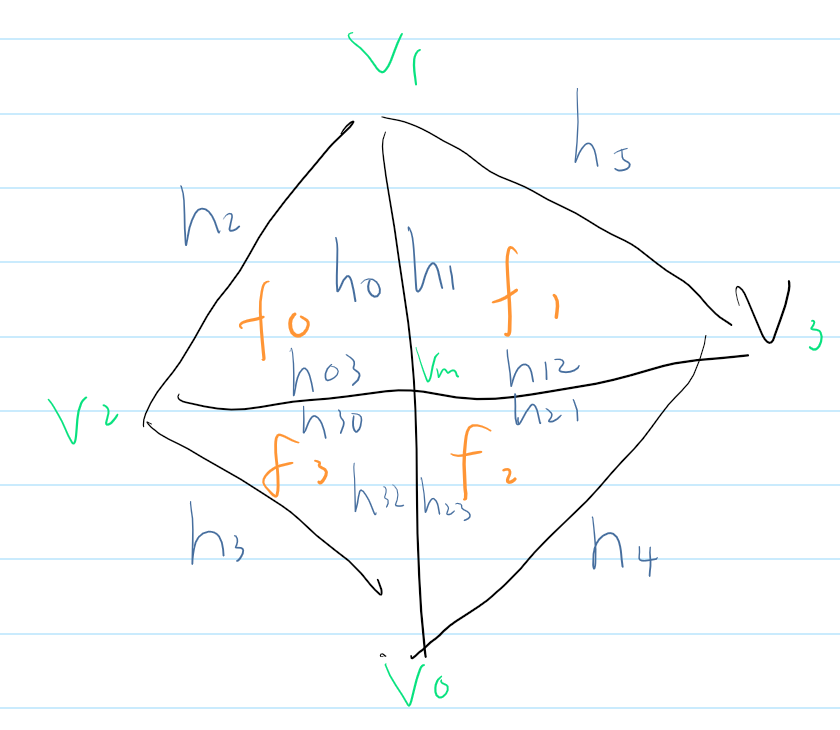 V1
h5
h2
h0 h1 f1
f0
V3
h03 Vm h12
V2 h30 h21
f3 f2
h32 h23
h3 h4
V0